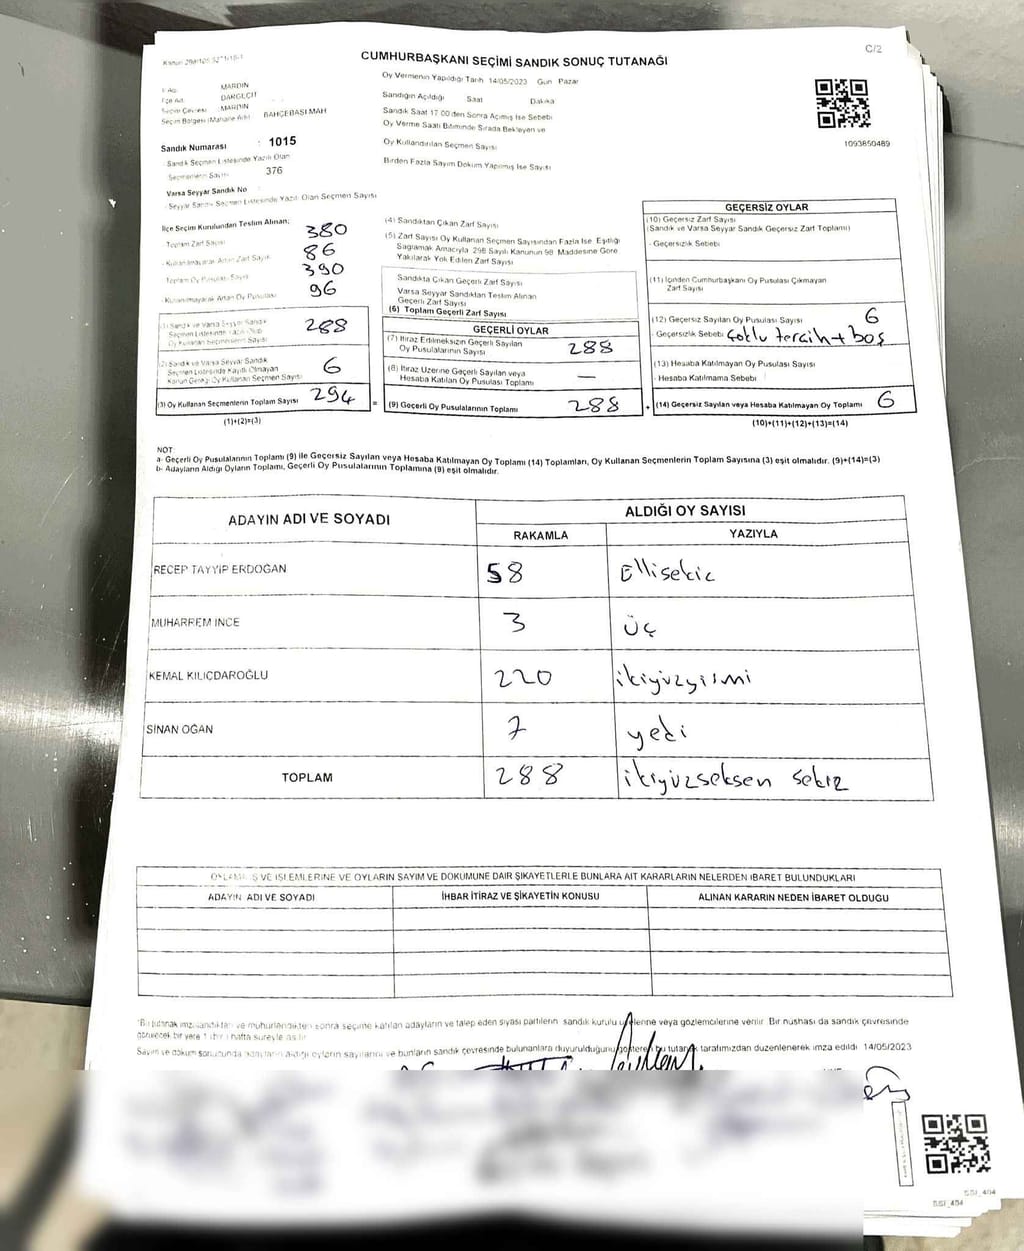 C/2
CUMHURBAŞKANI SEÇİMİ SANDIK SONUÇ TUTANAĞI
Oy Vermenin Yapıldığı Tarih 14/05/2023 Gün Pazar
MARDİN
İlçe Adı DARGEÇİT
Seçim Çevresi MARDİN
Seçim Bölgesi (Mahalle Adı) BAHÇEBAŞI MAH
Sandığın Açıldığı Saat Dakika
Sandık Saat 17.00'den Sonra Açılmış İse Sebebi
Oy Verme Saati Bitiminde Sırada Bekleyen ve
Oy Kullandırılan Seçmen Sayısı
Birden Fazla Sayım Döküm Yapılmış İse Sayısı
1093850489
Sandık Numarası : 1015
- Sandık Seçmen Listesinde Yazılı Olan
Seçmenlerin Sayısı 376
Varsa Seyyar Sandık No
- Seyyar Sandık Seçmen Listesinde Yazılı Olan Seçmen Sayısı
İlçe Seçim Kurulundan Teslim Alınan;
- Toplam Zarf Sayısı 380
- Kullanılmayarak Artan Zarf Sayısı 86
- Toplam Oy Pusulası Sayısı 390
- Kullanılmayarak Artan Oy Pusulası 96
(1) Sandık ve Varsa Seyyar Sandık
Seçmen Listesinde Yazılı Olup
Oy Kullanan Seçmenlerin Sayısı 288
(2) Sandık ve Varsa Seyyar Sandık
Seçmen Listesinde Kayıtlı Olmayan
Kanun Gereği Oy Kullanan Seçmen Sayısı 6
(3) Oy Kullanan Seçmenlerin Toplam Sayısı 294
(1)+(2)=(3)
(4) Sandıktan Çıkan Zarf Sayısı
(5) Zarf Sayısı Oy Kullanan Seçmen Sayısından Fazla İse, Eşitliği
Sağlamak Amacıyla 298 Sayılı Kanunun 98. Maddesine Göre
Yakılarak Yok Edilen Zarf Sayısı
Sandıkta Çıkan Geçerli Zarf Sayısı
Varsa Seyyar Sandıktan Teslim Alınan
Geçerli Zarf Sayısı
(6) Toplam Geçerli Zarf Sayısı
GEÇERLİ OYLAR
(7) İtiraz Edilmeksizin Geçerli Sayılan
Oy Pusulalarının Sayısı 288
(8) İtiraz Üzerine Geçerli Sayılan veya
Hesaba Katılan Oy Pusulası Toplamı —
= (9) Geçerli Oy Pusulalarının Toplamı 288
GEÇERSİZ OYLAR
(10) Geçersiz Zarf Sayısı
(Sandık ve Varsa Seyyar Sandık Geçersiz Zarf Toplamı)
- Geçersizlik Sebebi
(11) İçinden Cumhurbaşkanı Oy Pusulası Çıkmayan
Zarf Sayısı
(12) Geçersiz Sayılan Oy Pusulası Sayısı 6
- Geçersizlik Sebebi Çoklu tercih + boş
(13) Hesaba Katılmayan Oy Pusulası Sayısı
- Hesaba Katılmama Sebebi
+ (14) Geçersiz Sayılan veya Hesaba Katılmayan Oy Toplamı 6
(10)+(11)+(12)+(13)=(14)
NOT
a- Geçerli Oy Pusulalarının Toplamı (9) ile Geçersiz Sayılan veya Hesaba Katılmayan Oy Toplamı (14) Toplamları, Oy Kullanan Seçmenlerin Toplam Sayısına (3) eşit olmalıdır. (9)+(14)=(3)
b- Adayların Aldığı Oyların Toplamı, Geçerli Oy Pusulalarının Toplamına (9) eşit olmalıdır.
ADAYIN ADI VE SOYADI ALDIĞI OY SAYISI
RAKAMLA YAZIYLA
RECEP TAYYİP ERDOĞAN 58 Ellisekiz
MUHARREM İNCE 3 üç
KEMAL KILIÇDAROĞLU 220 ikiyüzyirmi
SİNAN OĞAN 7 yedi
TOPLAM 288 ikiyüzseksen sekiz
OYLAMA İŞ VE İŞLEMLERİNE VE OYLARIN SAYIM VE DÖKÜMÜNE DAİR ŞİKAYETLERLE BUNLARA AİT KARARLARIN NELERDEN İBARET BULUNDUKLARI
ADAYIN ADI VE SOYADI İHBAR İTİRAZ VE ŞİKAYETİN KONUSU ALINAN KARARIN NEDEN İBARET OLDUĞU
*Bu tutanak imzalandıktan ve mühürlendikten sonra seçime katılan adayların ve talep eden siyasi partilerin sandık kurulu üyelerine veya gözlemcilerine verilir. Bir nüshası da sandık çevresinde
görülecek bir yere 1 (bir) hafta süreyle asılır
Sayım ve döküm sonucunda adayların aldığı oyların sayılarını ve bunların sandık çevresinde bulunanlara duyurulduğunu gösteren bu tutanak tarafımızdan düzenlenerek imza edildi. 14/05/2023
SSI_404
SSI_404